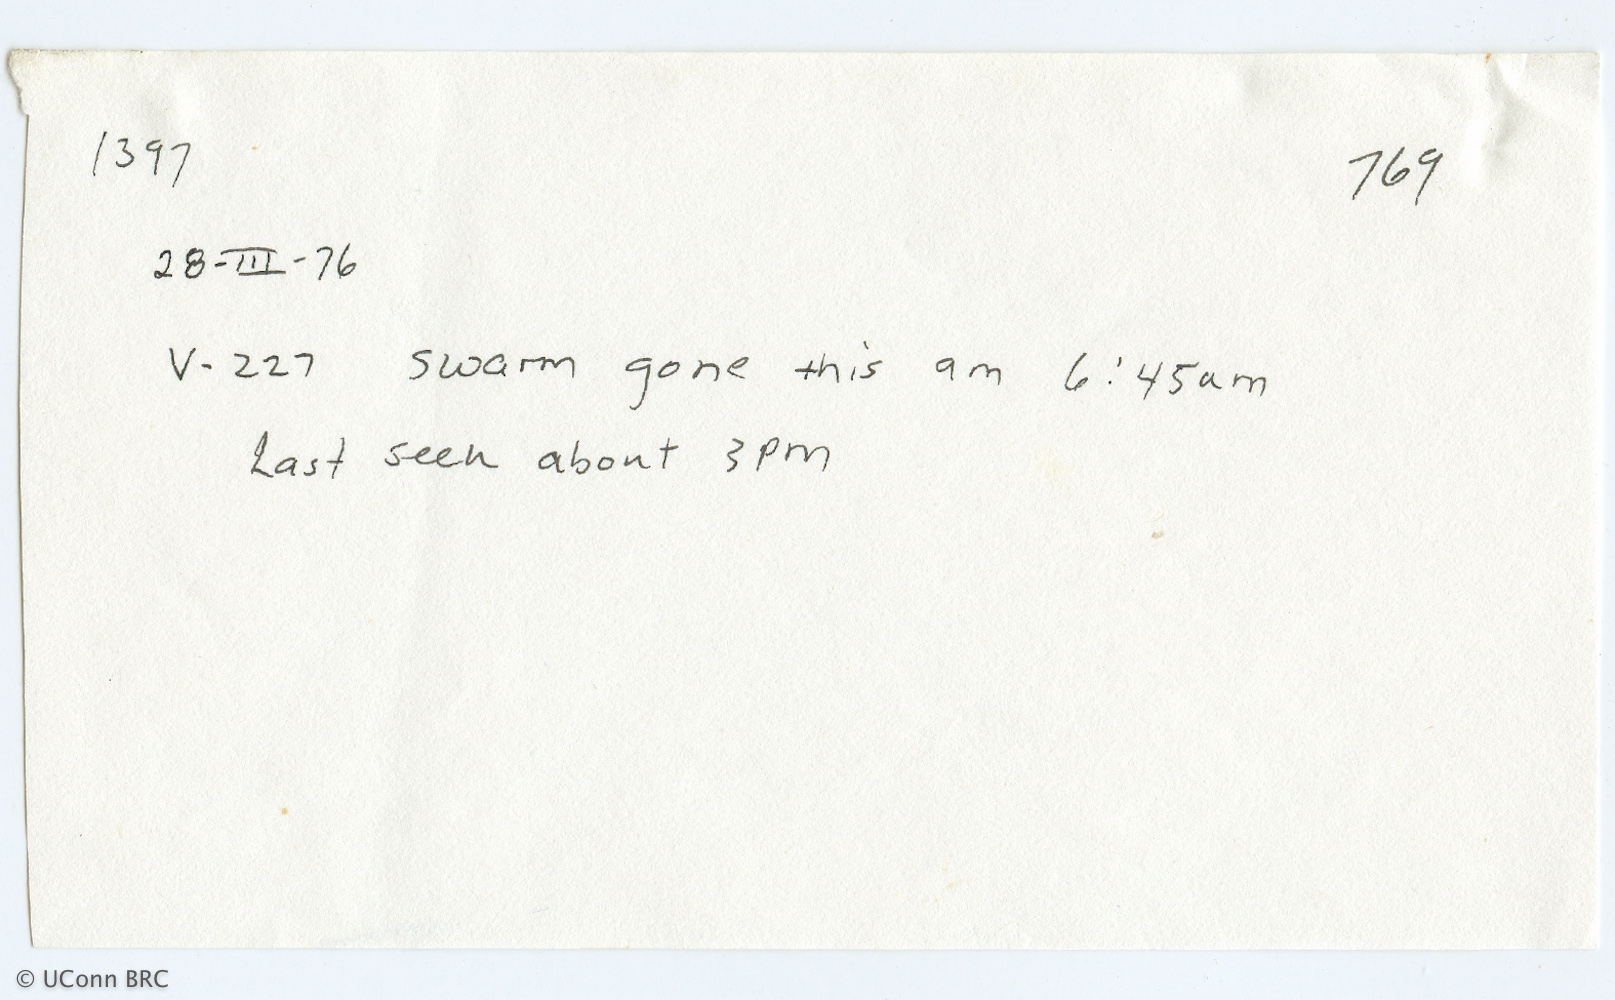 1397 769
28-III-76
V-227 swarm gone this am 6:45am
Last seen about 3pm
© UConn BRC